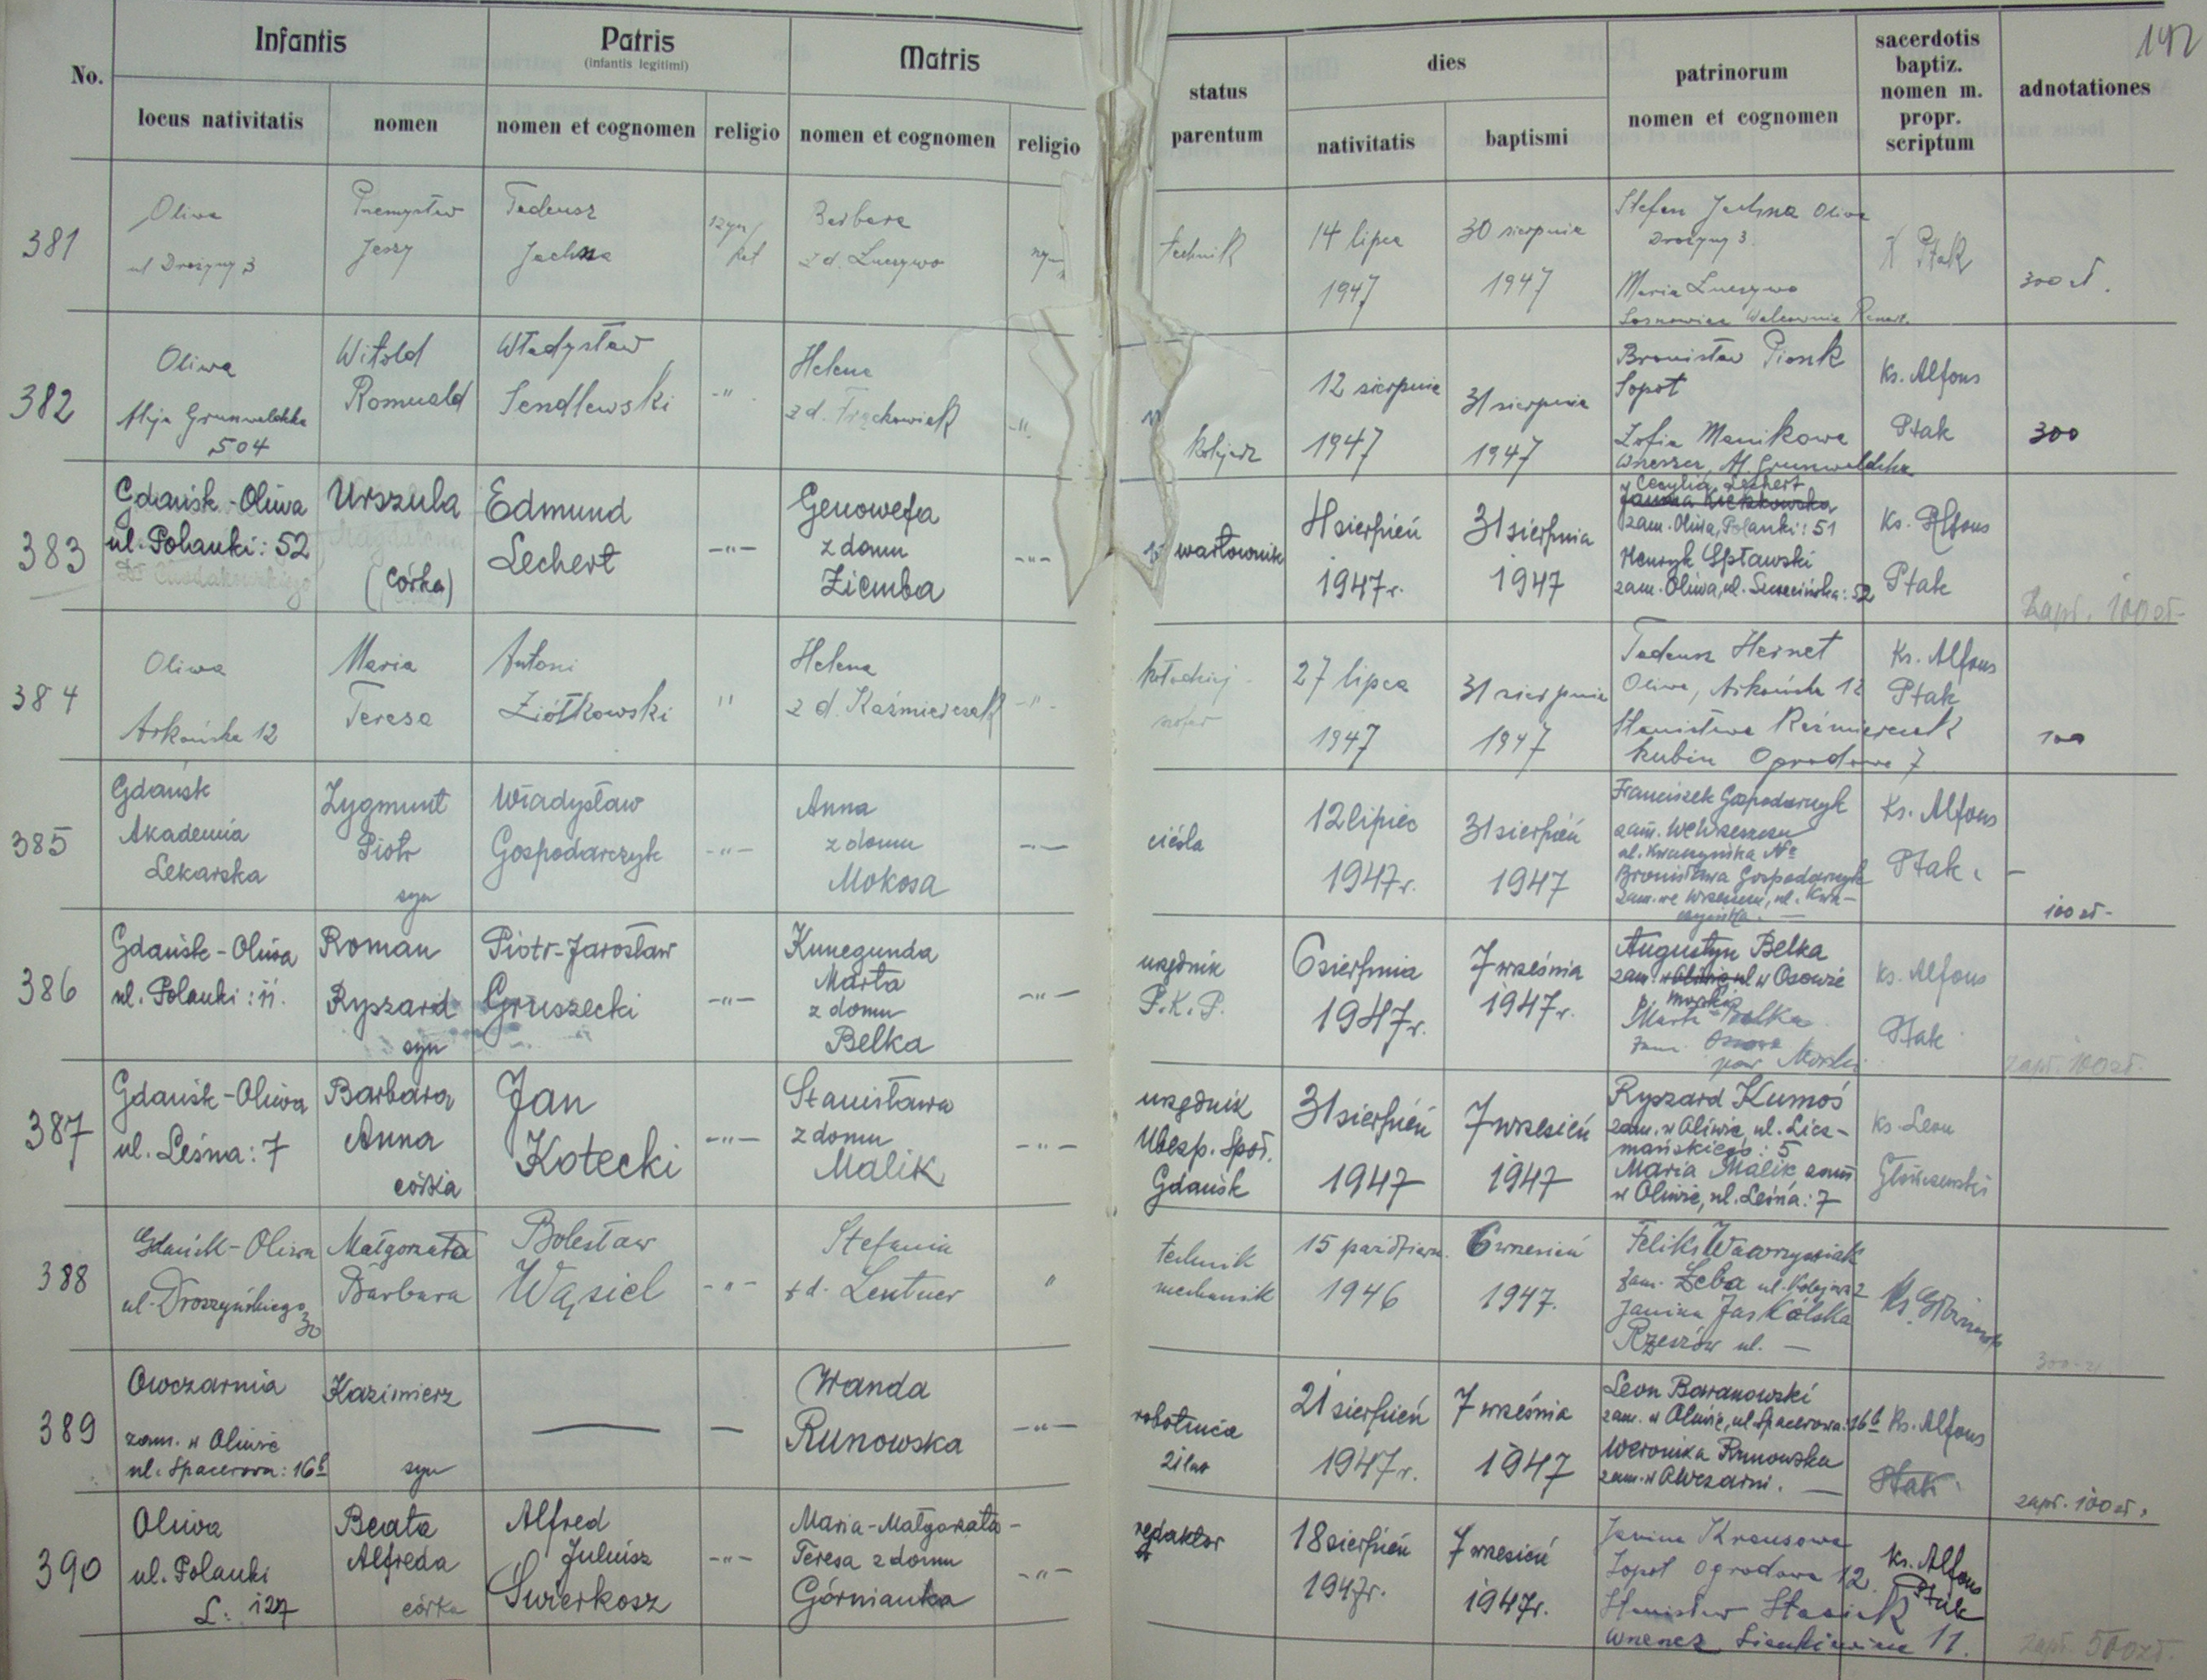 142
Infantis
Patris
(infantis legitimi)
Matris
No.
locus nativitatis
nomen
nomen et cognomen
religio
nomen et cognomen
religio
status
parentum
dies
nativitatis
baptismi
patrinorum
nomen et cognomen
sacerdotis
baptiz.
nomen m.
propr.
scriptum
adnotationes
381
Oliwa
ul Drożyny 3
Przemysław
Jerzy
Tadeusz
Jachna
rzym/
kat
Barbara
z d. Łuczywo
rzym
technik
14 lipca
1947
30 sierpnia
1947
Stefan Jachna Oliwa
Drożyny 3.
Maria Łuczywo
Sosnowiec Walcownia Renard.
X Ptak
300 zł.
382
Oliwa
Alja Grunwaldzka
504
Witold
Romuald
Władysław
Sendlewski
-"-
Helena
z d. Frąckowiak
-"-
kolejarz
12 sierpnia
1947
31 sierpnia
1947
Bronisław Pionk
Sopot
Zofia Manikowa
Wrzeszcz, Al. Grunwaldzka
Ks. Alfons
Ptak
300
383
Gdańsk-Oliwa
ul. Polanki: 52
Urszula
(córka)
Edmund
Lechert
-"-
Genowefa
z domu
Ziemba
-"-
wartownik
4 sierpień
1947r.
31 sierpnia
1947
Cecylia Lechert
zam. Oliwa, Polanki: 51
Henryk Spławski
zam. Oliwa, ul. Szczecińska: 52
Ks. Alfons
Ptak
Zapł. 100 zł-
384
Oliwa
Arkońska 12
Maria
Teresa
Antoni
Ziółkowski
"
Helena
z d. Kaźmierczak
-"-
kołodziej
27 lipca
1947
31 sierpnia
1947
Tadeusz Hernet
Oliwa, Arkońska 12
Stanisława Kaźmierczak
Kubin Ogrodowa 7
Ks. Alfons
Ptak
100
385
Gdańsk
Akademia
Lekarska
Zygmunt
Piotr
syn
Władysław
Gospodarczyk
-"-
Anna
z domu
Mokosa
-"-
cieśla
12 lipiec
1947r.
31 sierpień
1947
Franciszek Gospodarczyk
zam. we Wrzeszczu
Bronisława Gospodarczyk
zam. we Wrzeszczu, ul. Kwa-
Ks. Alfons
Ptak.
100 zł-
386
Gdańsk-Oliwa
ul. Polanki: 11.
Roman
Ryszard
syn
Piotr-Jarosław
Gruszecki
-"-
Kunegunda
Marta
z domu
Belka
-"-
urzędnik
P.K.P.
6 sierpnia
1947r.
7 września
1947r.
Augustyn Belka
zam. w Osowie
p. morski
Marta Belka
zam. Osowa
pow Morski
Ks. Alfons
Ptak
zapł. 100 zł.
387
Gdańsk-Oliwa
ul. Leśna: 7
Barbara
Anna
córka
Jan
Kotecki
-"-
Stanisława
z domu
Malik
-"-
urzędnik
Ubezp. Społ.
Gdańsk
31 sierpień
1947
7 wrzesień
1947
Ryszard Kumoś
zam. w Oliwie, ul. Lics-
mańskiego: 5
Maria Malik zam
w Oliwie, ul. Leśna: 7
Ks. Leon
Głończewski
388
Gdańsk-Oliwa
ul. Droszyńskiego
30
Małgorzata
Barbara
Bolesław
Wąsiel
-"-
Stefania
z d. Lentner
"
technik
mechanik
15 paździer.
1946
6 wrzesień
1947.
Feliks Wawrzyniak
zam. Łeba ul. Kolejowa 2
Janina Jaskólska
Rzeszów ul. —
300 zł
389
Owczarnia
zam. w Oliwie
ul. Spacerowa: 16b
Kazimierz
syn
—
—
Wanda
Runowska
-"-
robotnica
21 lat
21 sierpień
1947r.
7 września
1947
Leon Baranowski
zam. w Oliwie, ul. Spacerowa: 16b
Weronika Runowska
zam. w Owczarni. —
Ks. Alfons
Ptak
zapł. 100 zł.
390
Oliwa
ul. Polanki
L: 127
Beata
Alfreda
córka
Alfred
Juliusz
Świerkosz
-"-
Maria-Małgorzata-
Teresa z domu
Górnianka
-"-
redaktor
18 sierpień
1947r.
7 wrzesień
1947r.
Janina Krausowa
Sopot Ogrodowa 12.
Stanisław Stasiak
Wrzeszcz Sienkiewicza 11.
Ks. Alfons
Ptak
zapł. 500 zł.